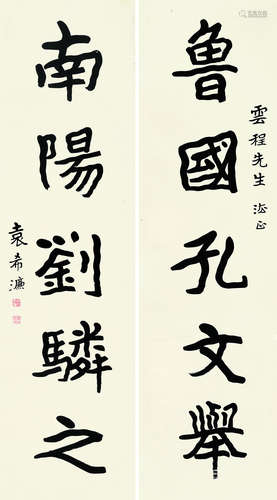 雲程先生法正
魯國孔文舉
南陽劉驎之
袁希濂